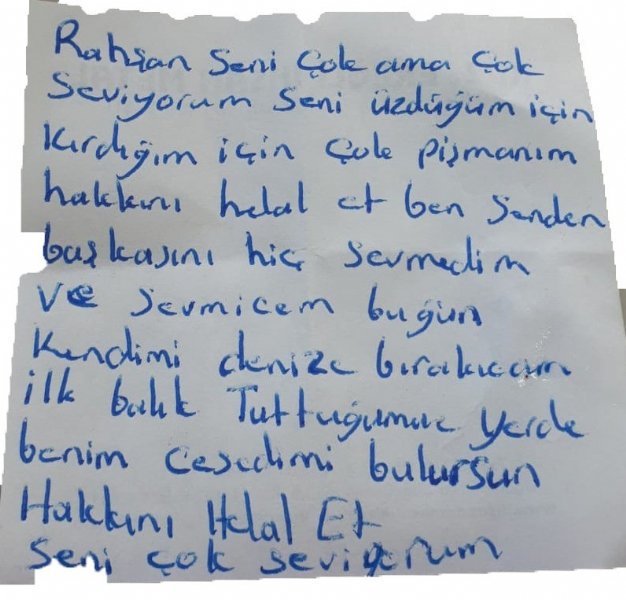 Rahşan seni çok ama çok
seviyorum seni üzdüğüm için
kırdığım için çok pişmanım
hakkını helal et ben senden
başkasını hiç sevmedim
ve sevmicem bugün
kendimi denize bırakıcam
ilk balık Tuttuğumuz yerde
benim cesedimi bulursun
Hakkını Helal Et
seni çok seviyorum